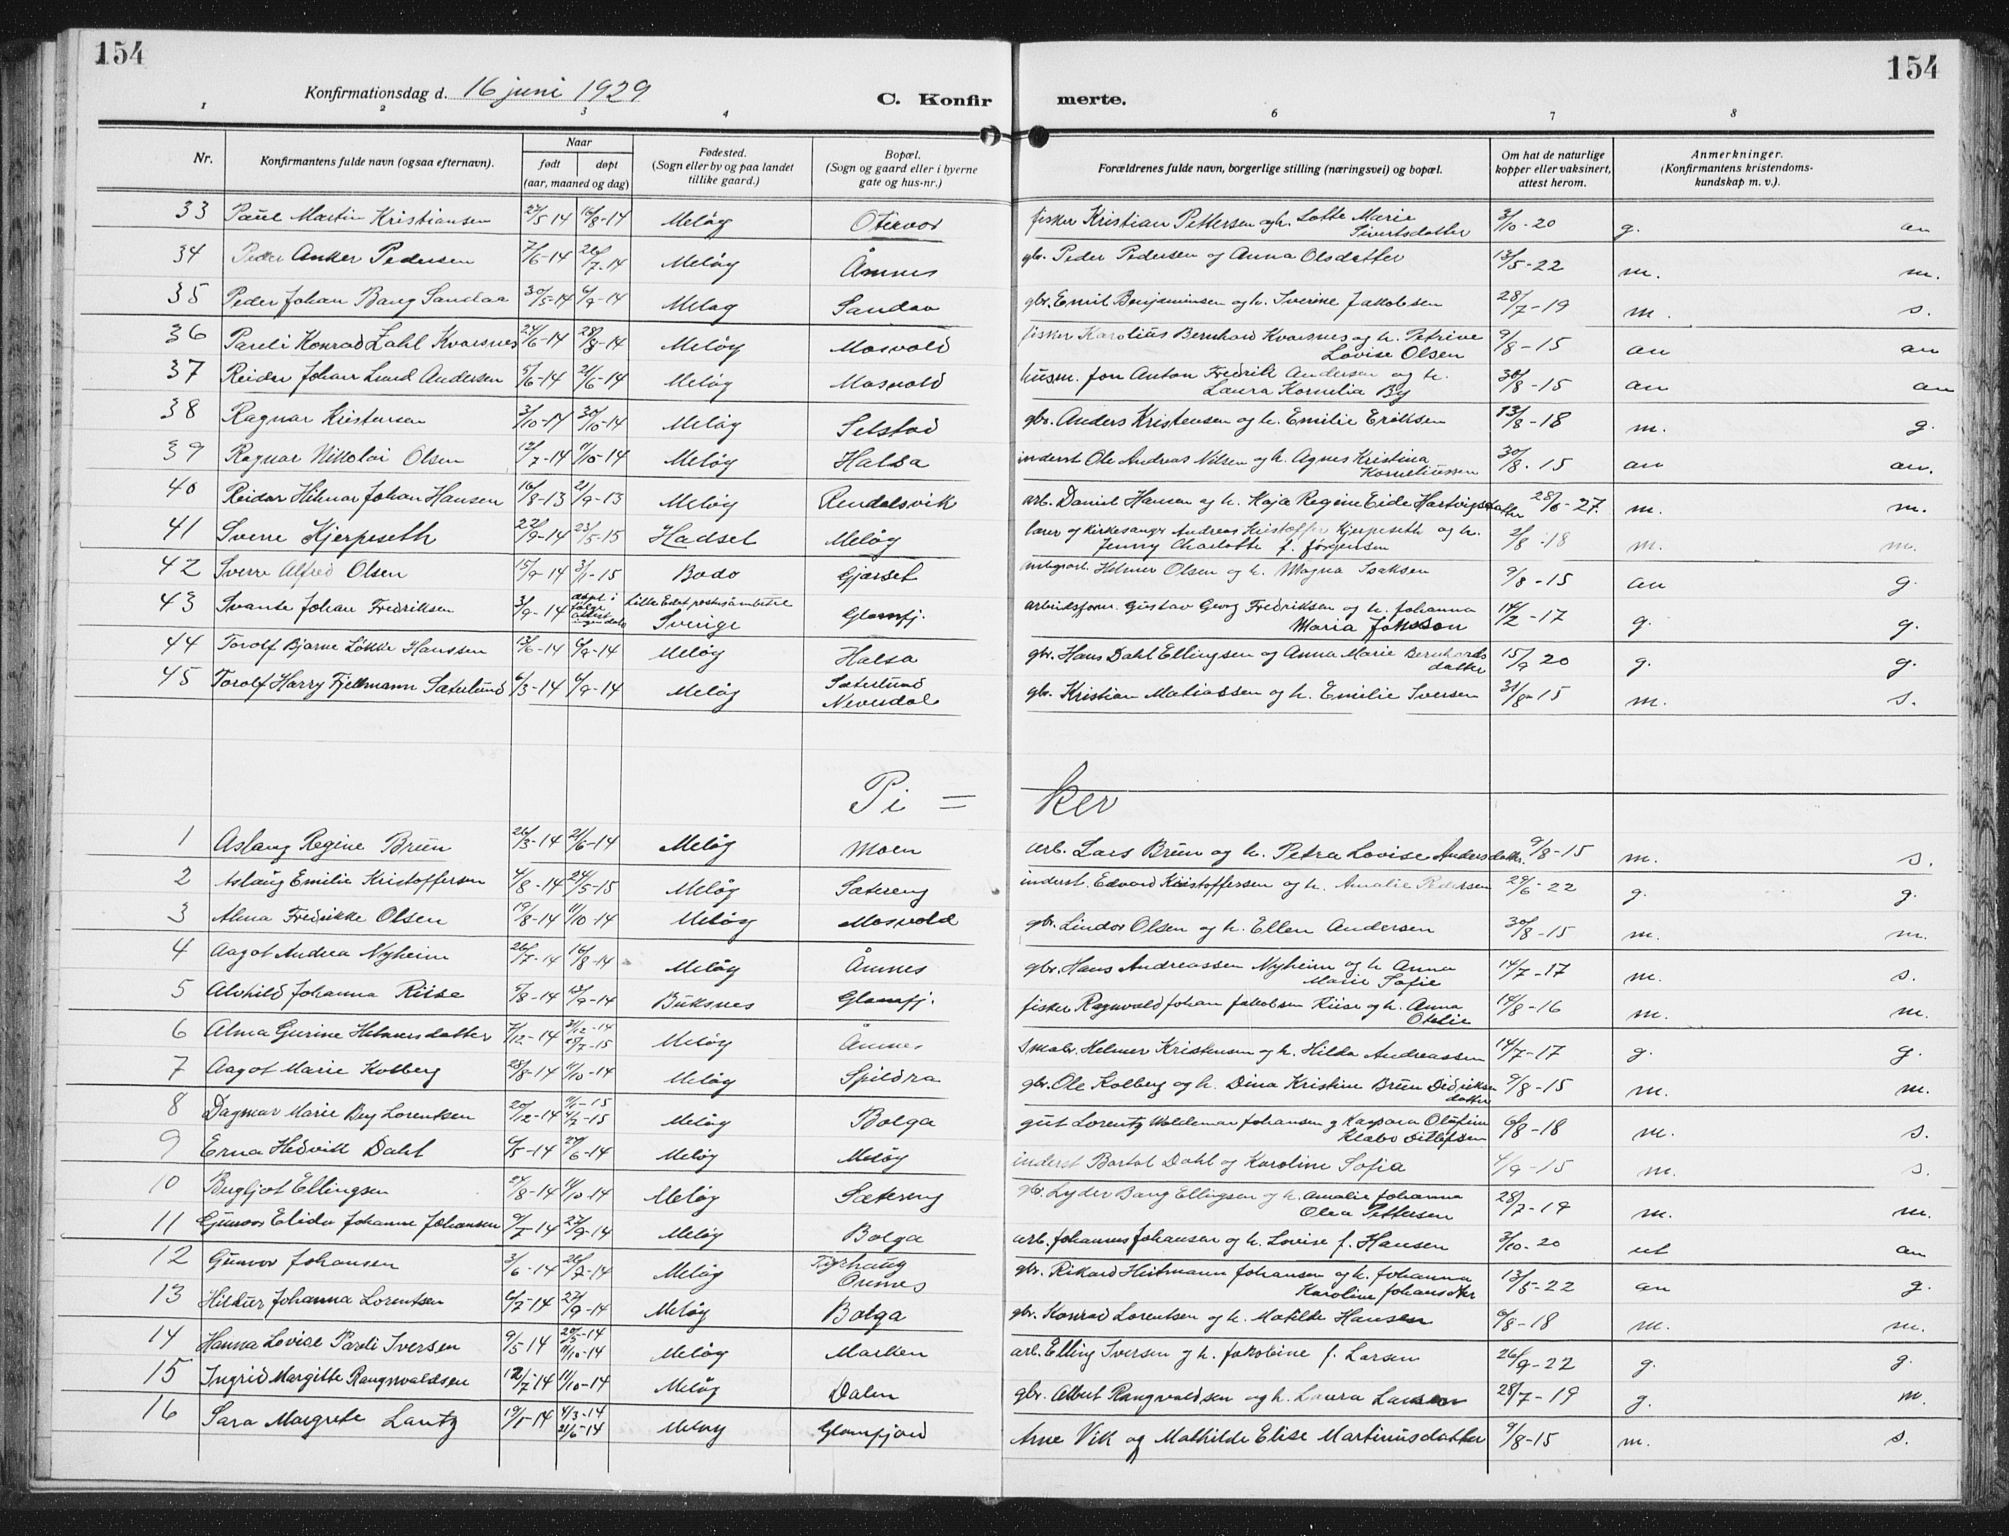 154
154
Konfirmationsdag d. 16 juni 1929
C. Konfir merte.
1 2 3 4 6 7 8
Nr.
Konfirmantens fulde navn (ogsaa efternavn).
Naar
født døpt
(aar, maaned og dag)
Fødested.
(Sogn eller by og paa landet
tillike gaard.)
Bopæl.
(Sogn og gaard eller i byerne
gate og hus-nr.)
Forældrenes fulde navn, borgerlige stilling (næringsvei) og bopæl.
Om hat de naturlige
kopper eller vaksinert,
attest herom.
Anmerkninger.
(Konfirmantens kristendoms-
kundskap m. v.).
33 Paul Martin Kristiansen 27/5-14 16/8-14 Meløy Otervær fisker Kristian Pettersen og h. Lotte Marie Sivertsdatter 3/10-20 g. an
34 Peder Anker Pedersen 7/6-14 26/7-14 Meløy Åmnes gbr. Peder Pedersen og Anna Olsdatter 13/5-22 m. m.
35 Peder Johan Bang Sandaa 30/5-14 6/9-14 Meløy Sandaa gbr. Emil Benjaminsen og h. Sverine Jakobsen 28/7-19 m. s.
36 Pareli Konrad Zahl Kvarsnes 24/6-14 28/8-14 Meløy Mosvold fisker Karolius Bernhard Kvarsnes og h. Petrine Lovise Olsen 9/8-15 an an
37 Reidar Johan Lund Andersen 5/6-14 21/6-14 Meløy Mosvold husm. Jon Anton Fredrik Andersen og h. Laura Kornelia By 30/8-15 an an
38 Ragnar Kristensen 3/10-14 30/10-14 Meløy Selstad gbr. Anders Kristensen og h. Emilie Eriksen 13/8-18 m. g.
39 Ragnar Nikolai Olsen 12/7-14 11/10-14 Meløy Halsa inderst Ole Andreas Nilsen og h. Agnes Kristina Korneliussen 30/8-15 an an.
40 Reidar Hilmar Johan Hansen 16/8-13 21/9-13 Meløy Rendalsvik arb. Daniel Hansen og h. Kaja Regine Eide Hartvigsdatter 28/8-27. m. m.
41 Sverre Kjerpeseth 22/9-14 23/5-15 Hadsel Meløy lærer og kirkesanger Andreas Kristoffer Kjerpeseth og h. Jenny Charlotte f. Jørgensen 2/8-18 m. m.
42 Sverre Alfred Olsen 15/9-14 3/1-15 Bodø Gjærset Helmer Olsen og h. Magna Isaksen 9/8-15 an g.
43 Svante Johan Fredriksen 3/9-14 døpt i følge attest Lilla Edet Sverige Glomfj. arbeidsform. Gustav Georg Fredriksen og h. Johanna Maria Jonsson 14/2-17 g. g.
44 Torolf Bjarne Løkke Hanssen 13/6-14 6/9-14 Meløy Halsa gbr. Hans Dahl Ellingsen og Anna Marie Bernhardsdatter 15/9 20 g. g.
45 Torolf Harry Fjellmann Sæterlund 6/3-14 6/9-14 Meløy Sæterlund Neverdal gbr. Kristian Matiassen og h. Emilie Iversen 31/8-15 m. s.
Pi = ker
1 Aslaug Regine Bruun 26/3-14 21/6-14 Meløy Moen arb. Lars Bruun og h. Petra Lovise Andersdattr. 9/8-15 m. s.
2 Aslaug Emilie Kristoffersen 4/8-14 24/5-15 Meløy Sætereng inderst. Edvard Kristoffersen og h. Amalie Pedersen 29/6-22 g. g.
3 Alma Fredrikke Olsen 19/8-14 11/10-14 Meløy Mosvold gbr. Lindor Olsen og h. Ellen Andersen 30/8-15 m. m.
4 Aagot Andrea Nyheim 26/7-14 16/8-14 Meløy Åmnes gbr. Hans Andreassen Nyheim og h Anna Marie Sofie 14/7-17 m. s.
5 Alvhild Johanna Riise 5/8-14 13/9-14 Buksnes Glomfj. fisker Ragnvald Johan Jakobsen Riise og h. Anna Otelie 14/8-16 m. m.
6 Alma Gurine Helmersdatter 7/12-14 31/12-14 25/7-15 Meløy Åmnes småbr. Helmer Kristensen og h. Hilda Andreassen 14/7-17 g. g.
7 Aagot Marie Kolberg 28/8-14 11/10-14 Meløy Spildra gbr. Ole Kolberg og h. Dina Kristine Bruun Didriksdatter 9/8-15 m. m.
8 Dagmar Marie Berg Lorentsen 20/12-14 9/1-15 4/2-15 Meløy Bolga gut Lorentz Woldemar Johansen og Kaspara Olufine Klabo Ditlefsen 6/8-18 m. s.
9 Erna Hedvik Dahl 6/5-14 24/6-14 Meløy Meløy inderst Bartol Dahl og Karoline Sofia 4/9-15 m. s.
10 Bergljot Ellingsen 27/8-14 11/10-14 Meløy Sætereng gbr. Lyder Bang Ellingsen og h. Amalie Johanna Olea Pettersen 28/7-19 m. m.
11 Gunvor Elida Johanne Johansen 9/7-14 27/9-14 Meløy Bolga arb. Johannes Johansen og h. Lovise f. Hansen 3/10-20 ut an
12 Gunvor Johansen 3/6-14 26/7-14 Meløy Fyrhaug Ørnes gbr. Rikard Hartmann Johansen og h. Johanna Karoline Johansdtr 13/5-22 an g.
13 Hildur Johanna Lorentsen 6/2-14 27/9-14 Meløy Bolga gbr. Konrad Lorentsen og h. Matilde Hansen 6/8-18 m. m.
14 Hanna Lovise Pareli Iversen 9/5-14 20/5-14 11/10-14 Meløy Marken arb. Elling Iversen og h. Jakobine f. Larsen 26/9-22 g. g.
15 Ingrid Margitte Rangnvaldsen 12/7-14 11/10-14 Meløy Dalen gbr. Albert Rangvaldsen og h. Laura Larsen 28/7-19 g. m.
16 Sara Margrete Lantz 19/1-14 4/3-14 21/6-14 Meløy Glomfjord Arne Vik og Mathilde Elise Martinusdatter 9/8-15 m. s.